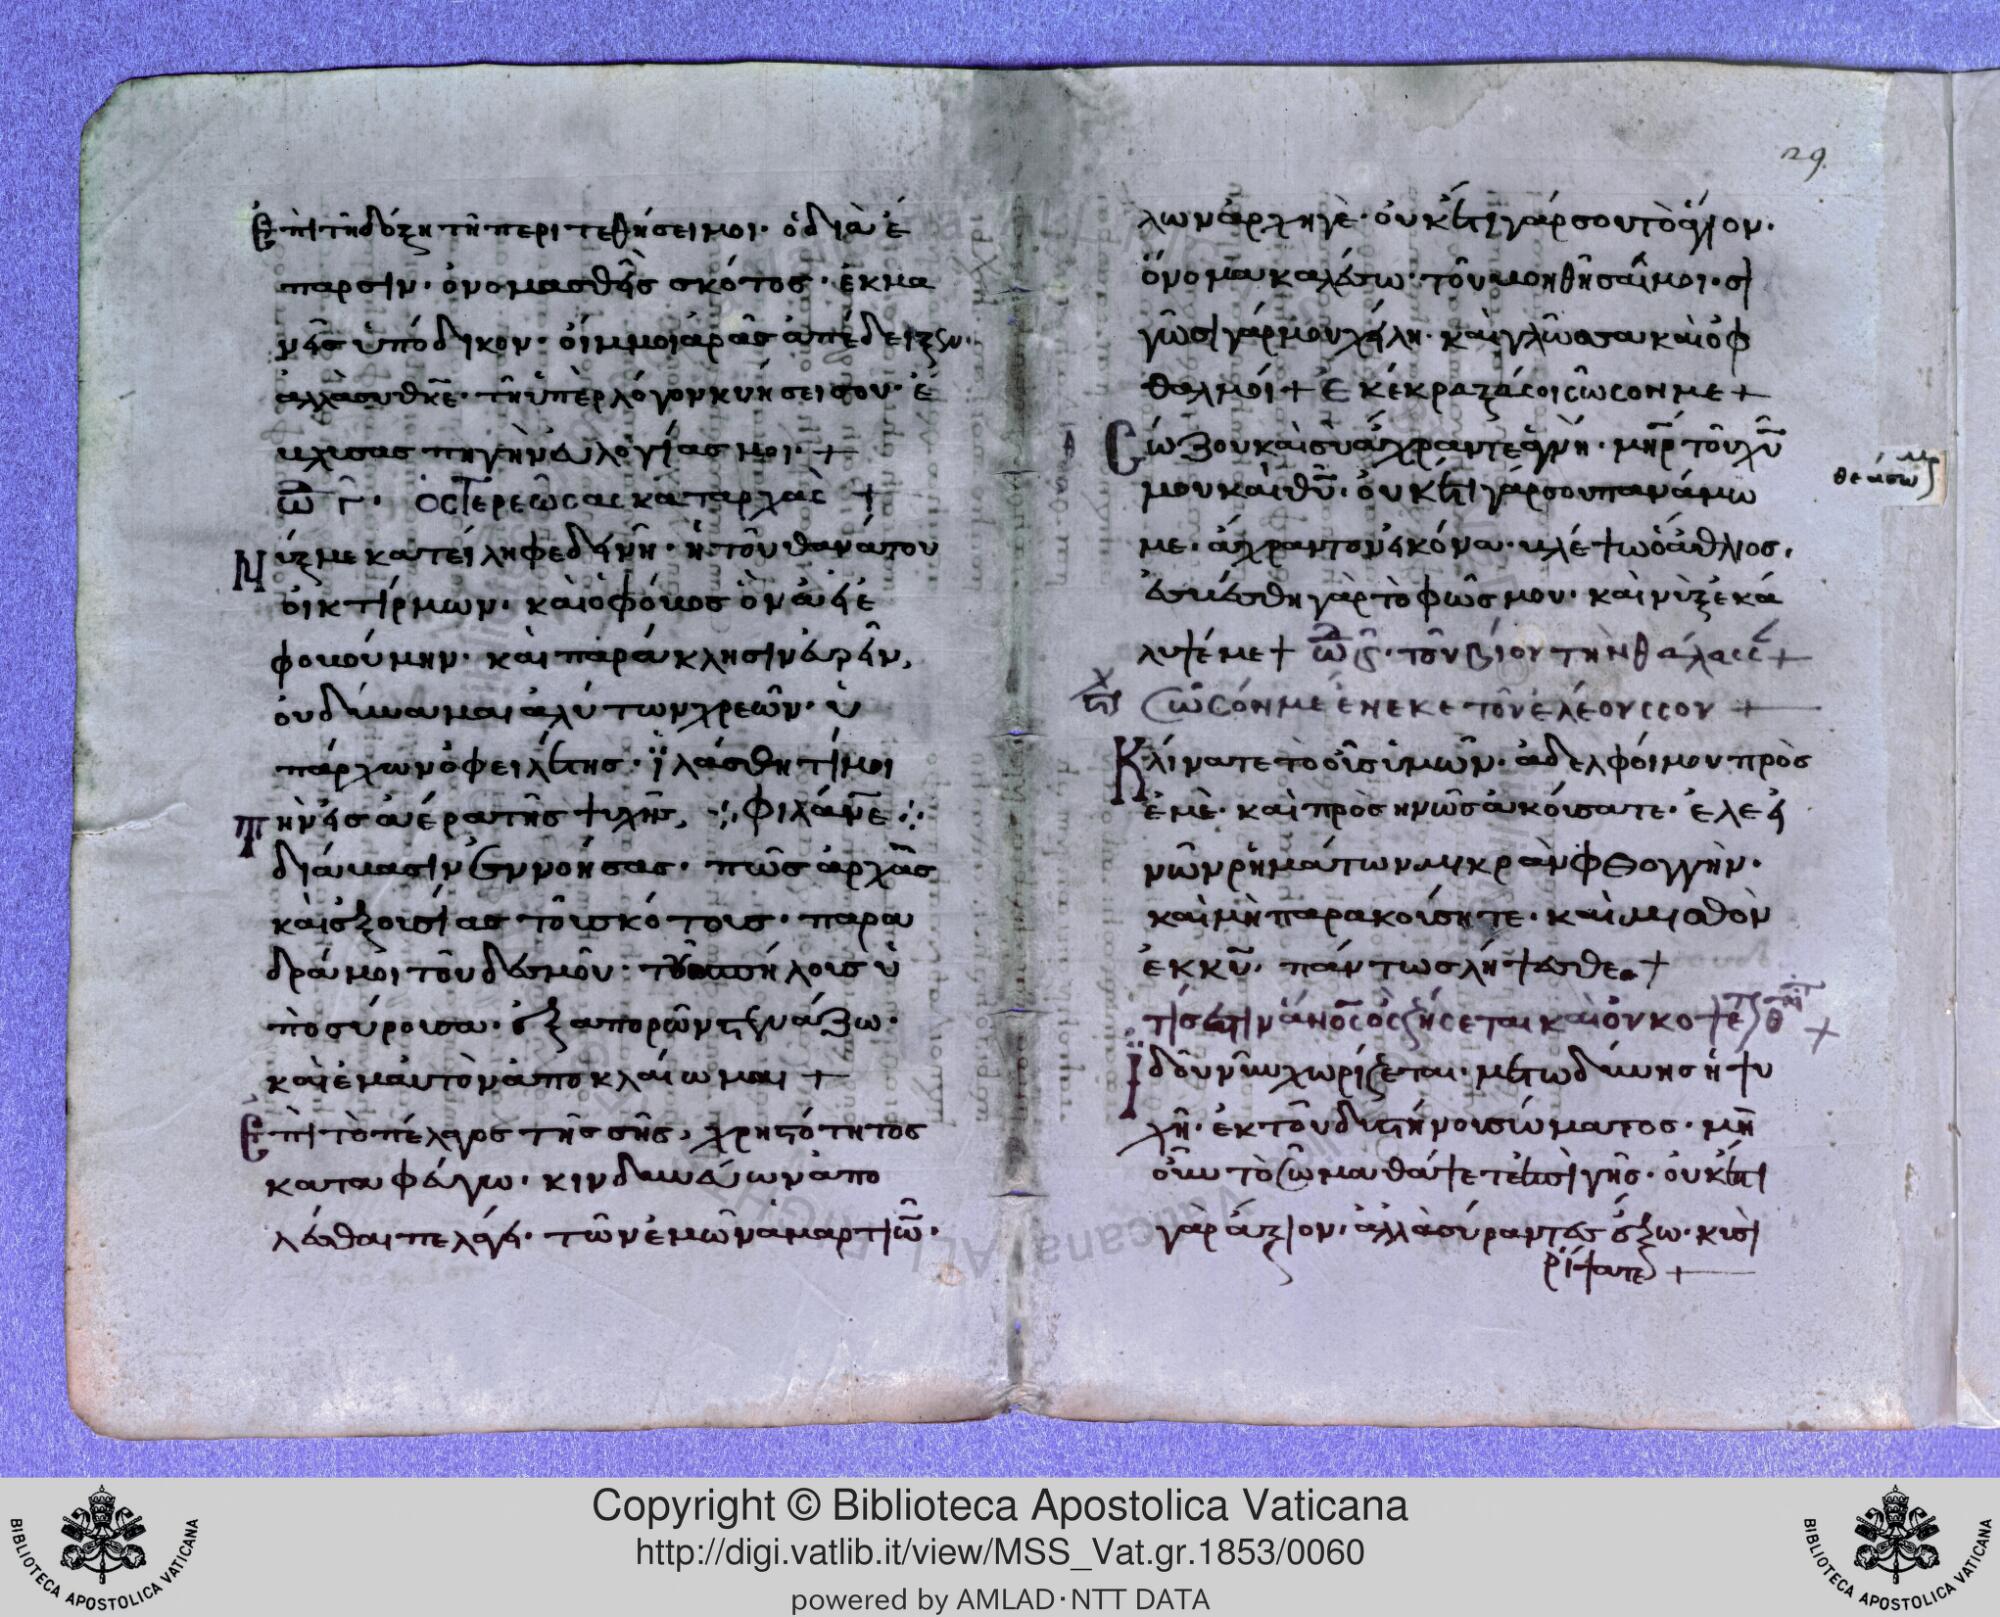 29.
Ἐπὶ τῆ δόξη τῆ περιτεθήσει μοι· ὁ διὰ ἔ
παρσιν· ὀνομασθεὶς σκότος· ἐκμα
νεὶς ὑπόδικον· οἵμμοι ἀρᾶς ἀπέδειξεν·
ἀλλὰ σὺ θκὲ· τῆ ὑπὲρ λόγον κυήσει σου· ἐ
βλυσας πηγὴν εὐλογίας μοι· +
ὠ γ· Ὁ στερεώσας κατ αρχὰς +
Νύξ με κατείληφε δεινὴ· ἡ τοῦ θανάτου
οἰκτίρμων· καὶ ὁ φόβος ὃν ἀεὶ ἐ
φοβούμην· καὶ παράκλησιν εὑρεῖν,
οὐ δύναμαι ἀλύτων χρεῶν· ὑ
πάρχων ὀφειλέτης· ἱλάσθητί μοι
τὴν εἰς ἀέρα τῆς ψυχῆς, φιλάνε
διάβασιν ἐννοήσας· πῶς ἀρχὰς
καὶ ἐξουσίας τοῦ σκότους· παρα
δράμοι τοῦ δεσμοῦ· τοῦ πηλοῦ σὺ
ποσύρουσα· ἐξαπορῶν στενάζω·
καὶ ἐμαυτὸν ἀποκλαίωμαι +
Ἐπὶ τὸ πέλαγος τῆς σῆς, χρηστότητος
καταφεύγω· κινδυνεύων ἀπο
λέσθαι πελάγει· τῶν ἐμῶν ἁμαρτιῶ·
λων ἀρχηγὲ· οὐκέτι γάρ σου τὸ ἅγιον·
ὄνομα καλέσω· τοῦ βοηθῆσαί μοι· σι
γῶσι γάρ μου χείλη· καὶ γλῶσσα καὶ ὀφ
θαλμοί + Ἐκέκραξά σοι σῶσον με +
Σώζου καὶ σὺ ἄχραντε ἁγνὴ· μῆρ τοῦ χυ
μου καὶ θυ· οὐκέτι γάρ σου πανάμω
με· ἄχραντον εἰκόνα· βλέψω ὁ ἄθλιος,
ἐσβέσθη γὰρ τὸ φῶς μου· καὶ νὺξ ἐκά
λυψέ με + ὠ ς· τοῦ βίου τὴν θάλασσ +
Σῶσόν με ἕνεκε τοῦ ἐλέους σου +
Κλίνατε τὸ οὖς ὑμῶν· ἀδελφοί μου πρὸς
ἐμὲ· καὶ προσηνῶς ἀκούσατε· ἐλεει
νῶν ῥημάτων μικρὰν φθογγὴν·
καὶ μὴ παρακούσητε· καὶ μισθὸν
ἐκ κυ· πάντως λήψεσθε +
τίς ἐστιν ἄνος ὃς ζήσεται καὶ οὐκ ὄψε θ +
Ἰδοὺ νῦν χωρίζεται· μετ ὠδύνης ἡ ψυ
χὴ· ἐκ τοῦ δυστήνου σώματος· μὴ
οὖν τὸ σῶμα θάψετε ἐπὶ γῆς· οὐκ ἔστι
γὰρ ἄξιον· ἀλλὰ σύραντες ἔξω· κυσὶ
ῥίψατε +
Copyright © Biblioteca Apostolica Vaticana
http://digi.vatlib.it/view/MSS_Vat.gr.1853/0060
powered by AMLAD·NTT DATA
BIBLIOTECA APOSTOLICA VATICANA
BIBLIOTECA APOSTOLICA VATICANA